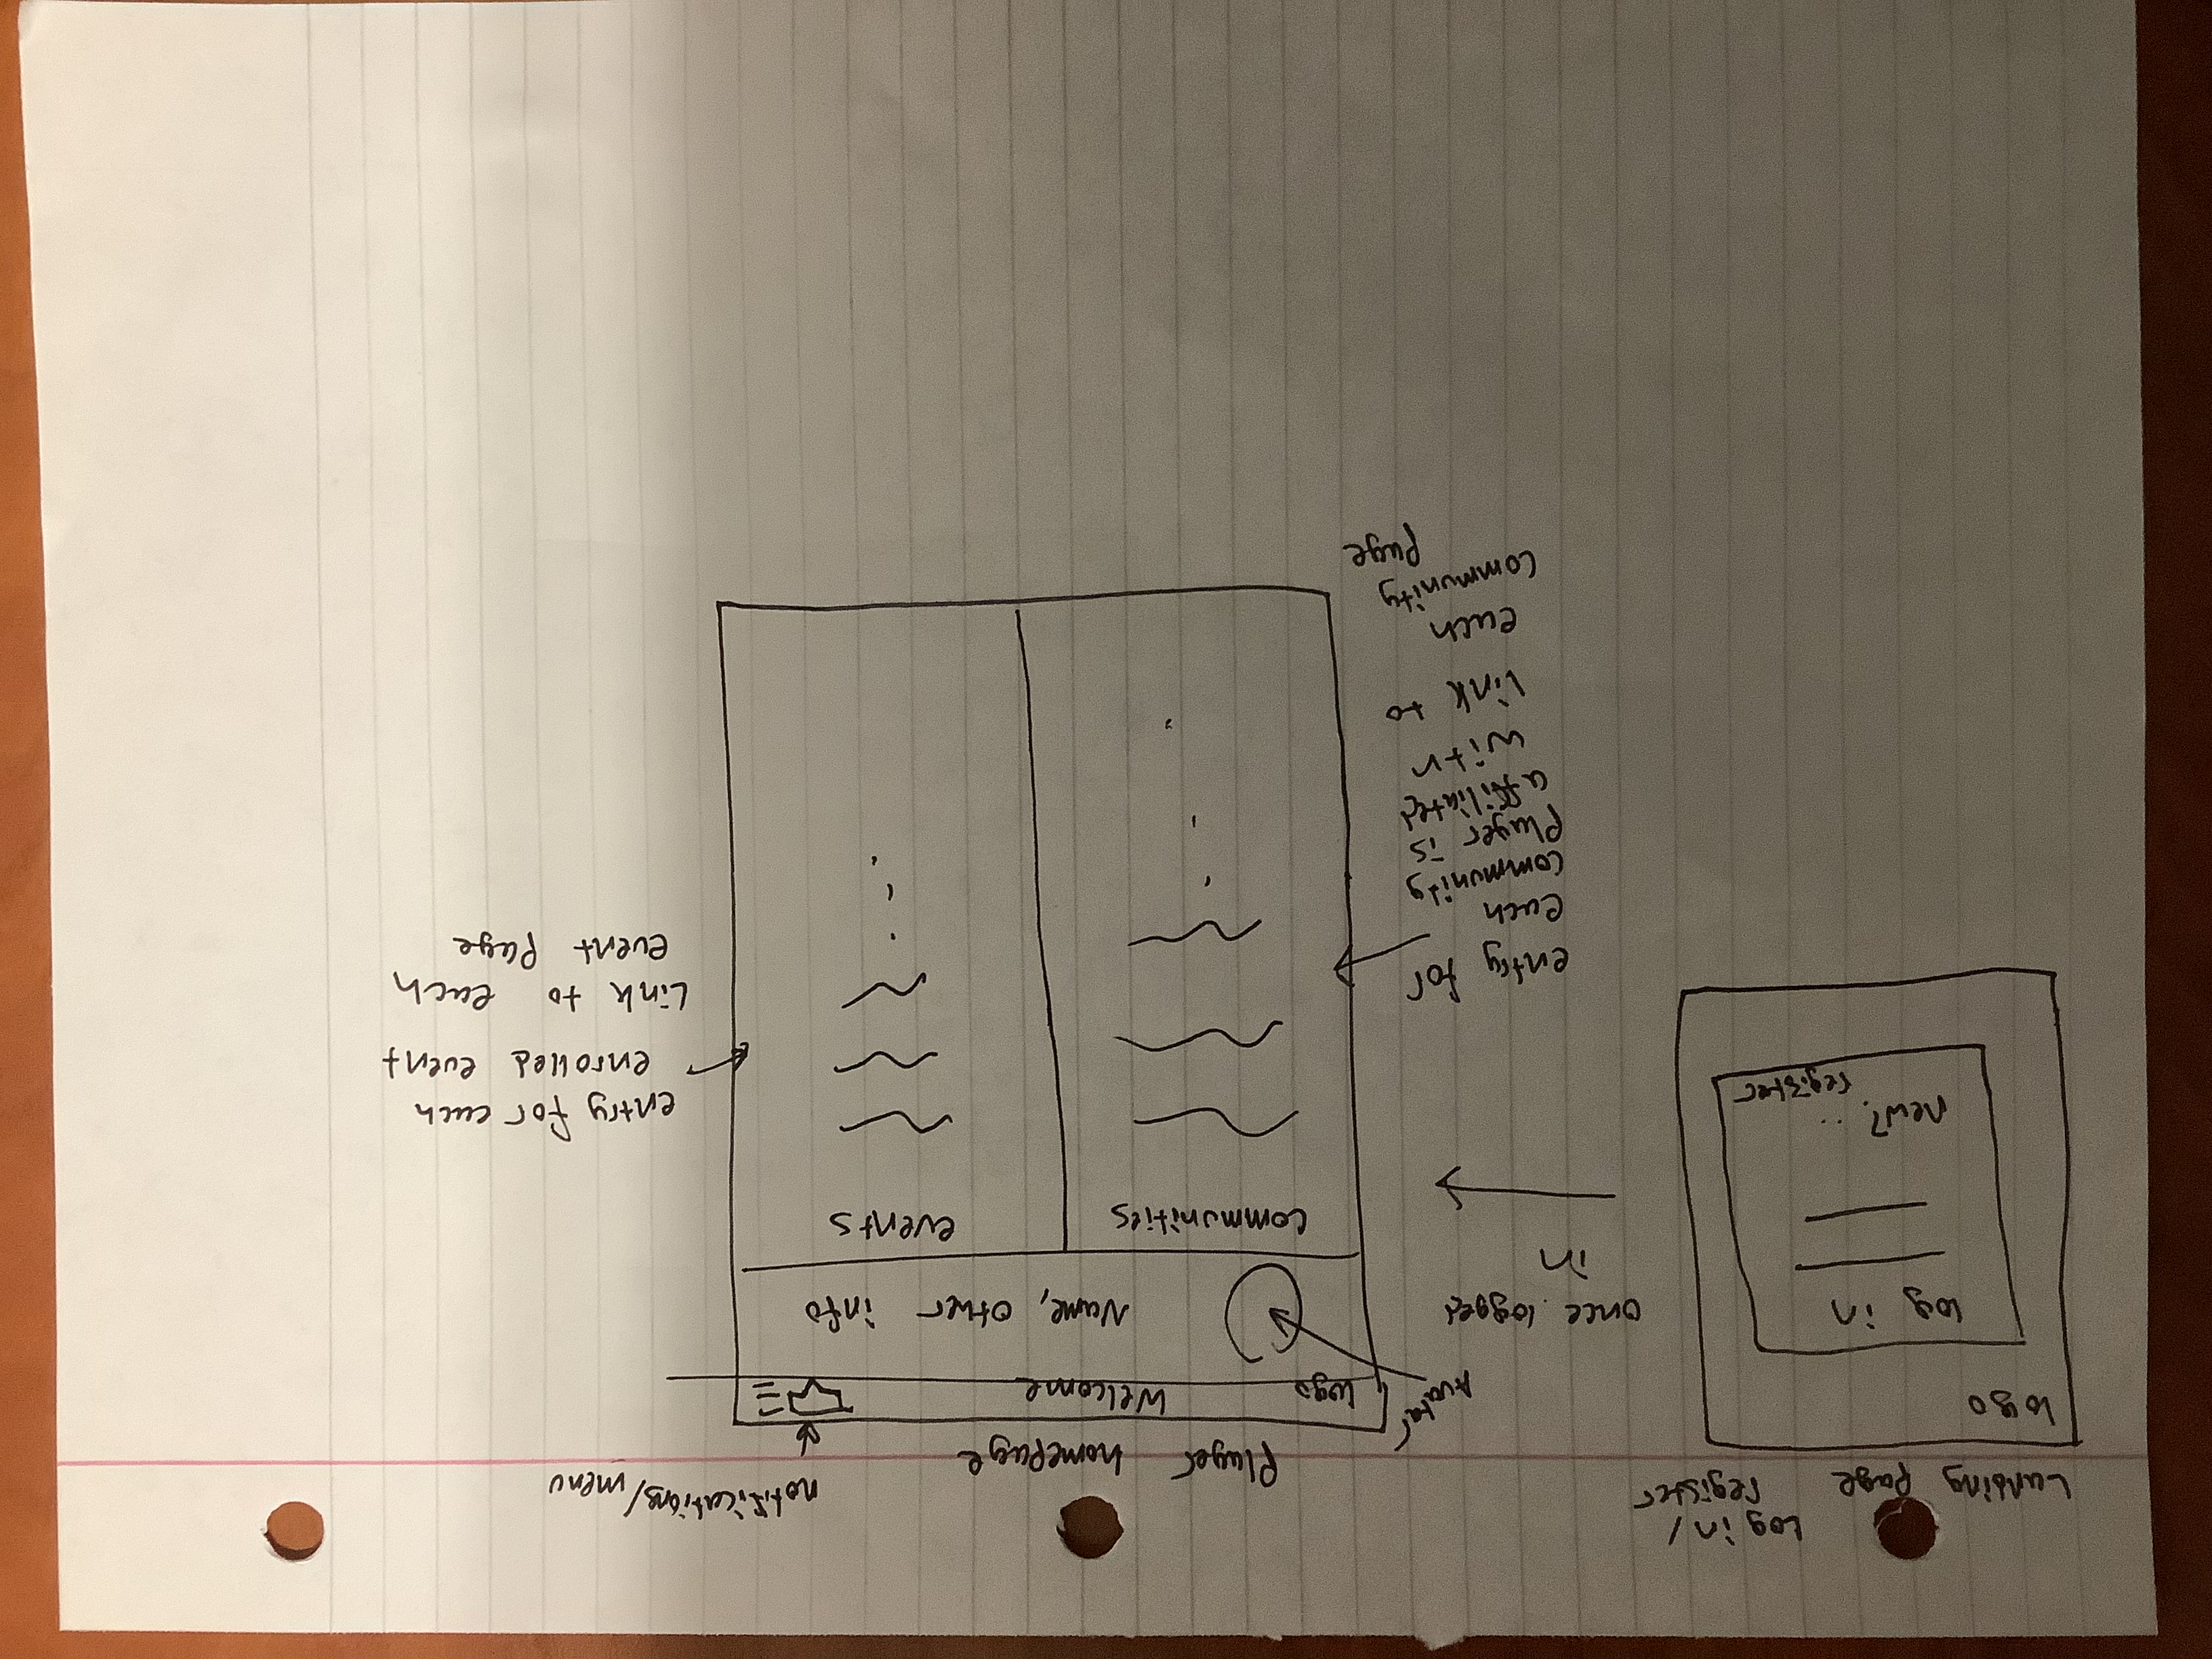 Landing page
Log in/
register
logo
log in
new? ..
register
once logged
in
Player homepage
notifications/menu
Avatar
logo Welcome
Name, other info
communities
events
entry for
each
community
player is
affiliated
with
link to
each
community
page
entry for each
enrolled event
Link to each
event page